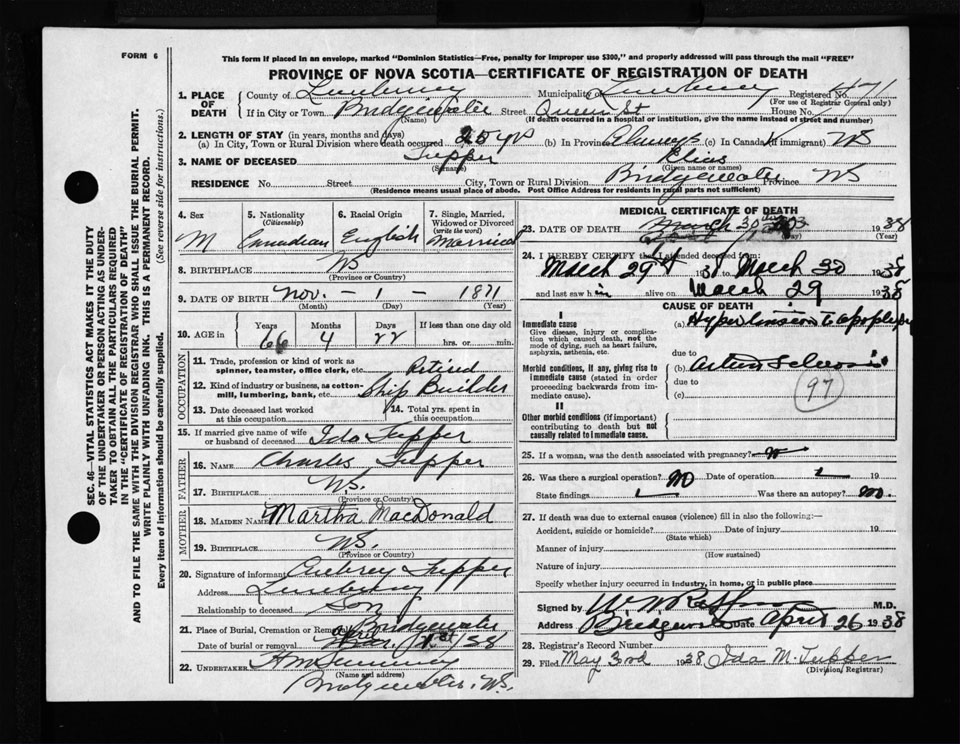 FORM 6
This form if placed in an envelope, marked "Dominion Statistics—Free, penalty for improper use $300," and properly addressed will pass through the mail "FREE"
PROVINCE OF NOVA SCOTIA—CERTIFICATE OF REGISTRATION OF DEATH
SEC. 46—VITAL STATISTICS ACT MAKES IT THE DUTY
OF THE UNDERTAKER OR PERSON ACTING AS UNDER-
TAKER TO OBTAIN ALL THE PARTICULARS REQUIRED
IN THE "CERTIFICATE OF REGISTRATION OF DEATH"
AND TO FILE THE SAME WITH THE DIVISION REGISTRAR WHO SHALL ISSUE THE BURIAL PERMIT.
WRITE PLAINLY WITH UNFADING INK. THIS IS A PERMANENT RECORD.
Every item of information should be carefully supplied. (See reverse side for instructions.)
1. PLACE OF DEATH County of Lunenburg Municipality of Lunenburg Registered No. 471
(For use of Registrar General only)
If in City or Town Bridgewater Street Queen St House No.
(Name) (If death occurred in a hospital or institution, give the name instead of street and number)
2. LENGTH OF STAY (in years, months and days)
(a) In City, Town or Rural Division where death occurred 25 yrs (b) In Province Always (c) In Canada (if immigrant) NS
3. NAME OF DECEASED Tupper Elias
(Surname) (Given name or names)
RESIDENCE No. Street City, Town or Rural Division Bridgewater Province NS
(Residence means usual place of abode. Post Office Address for Residents in rural parts not sufficient)
4. Sex 5. Nationality (Citizenship) 6. Racial Origin 7. Single, Married, Widowed or Divorced (write the word)
M Canadian English Married
8. BIRTHPLACE NS
(Province or Country)
9. DATE OF BIRTH Nov. - 1 - 1871
(Month) (Day) (Year)
10. AGE in Years Months Days If less than one day old
66 4 22 hrs. or min.
OCCUPATION
11. Trade, profession or kind of work as spinner, teamster, office clerk, etc. Retired
12. Kind of industry or business, as cotton-mill, lumbering, bank, etc. Ship Builder
13. Date deceased last worked at this occupation 14. Total yrs. spent in this occupation
15. If married give name of wife or husband of deceased Ida Tupper
FATHER
16. NAME Charles Tupper
17. BIRTHPLACE NS.
(Province or Country)
MOTHER
18. MAIDEN NAME Martha MacDonald
19. BIRTHPLACE NS.
(Province or Country)
20. Signature of informant Aubrey Tupper
Address Lunenburg
Relationship to deceased Son
21. Place of Burial, Cremation or Removal Bridgewater
Date of burial or removal 1st/38
22. UNDERTAKER
(Name and address)
Bridgewater, NS.
MEDICAL CERTIFICATE OF DEATH
23. DATE OF DEATH March 30 1938
(Day) (Year)
24. I HEREBY CERTIFY that I attended deceased from:
March 29th 1938 to March 30 1938
and last saw him alive on March 29 1938
CAUSE OF DEATH
I
Immediate cause
Give disease, injury or complication which caused death, not the mode of dying, such as heart failure, asphyxia, asthenia, etc.
(a)
due to
Morbid conditions, if any, giving rise to immediate cause (stated in order proceeding backwards from immediate cause).
(b) Arterio Sclerosis
due to
(c) 97
II
Other morbid conditions (if important) contributing to death but not causally related to immediate cause.
25. If a woman, was the death associated with pregnancy?
26. Was there a surgical operation? No Date of operation 19
State findings Was there an autopsy? No.
27. If death was due to external causes (violence) fill in also the following:—
Accident, suicide or homicide? Date of injury 19
(State which)
Manner of injury
(How sustained)
Nature of injury
Specify whether injury occurred in industry, in home, or in public place
Signed by M.D.
Address Bridgewater Date April 26 1938
28. Registrar's Record Number
29. Filed May 3rd 1938 Ida M. Tupper
(Division Registrar)